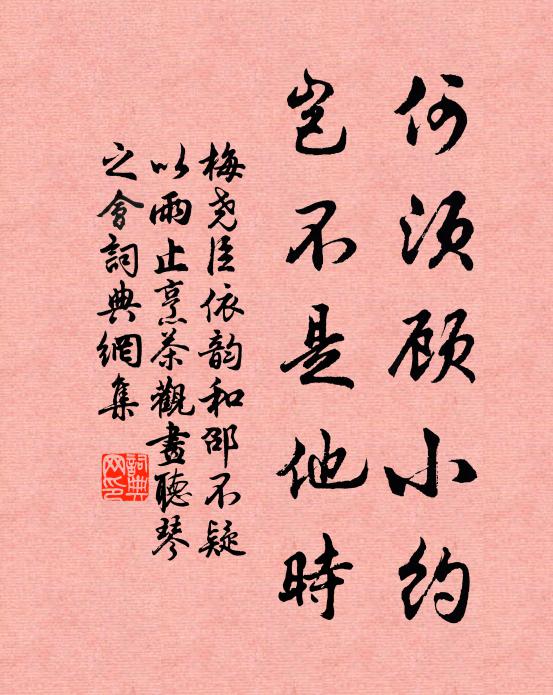 何须顾小约
岂不是他時
梅尧臣依韵和邵不疑
以雨止烹茶觀畫聽琴
之會詞典網集
詞典
网印